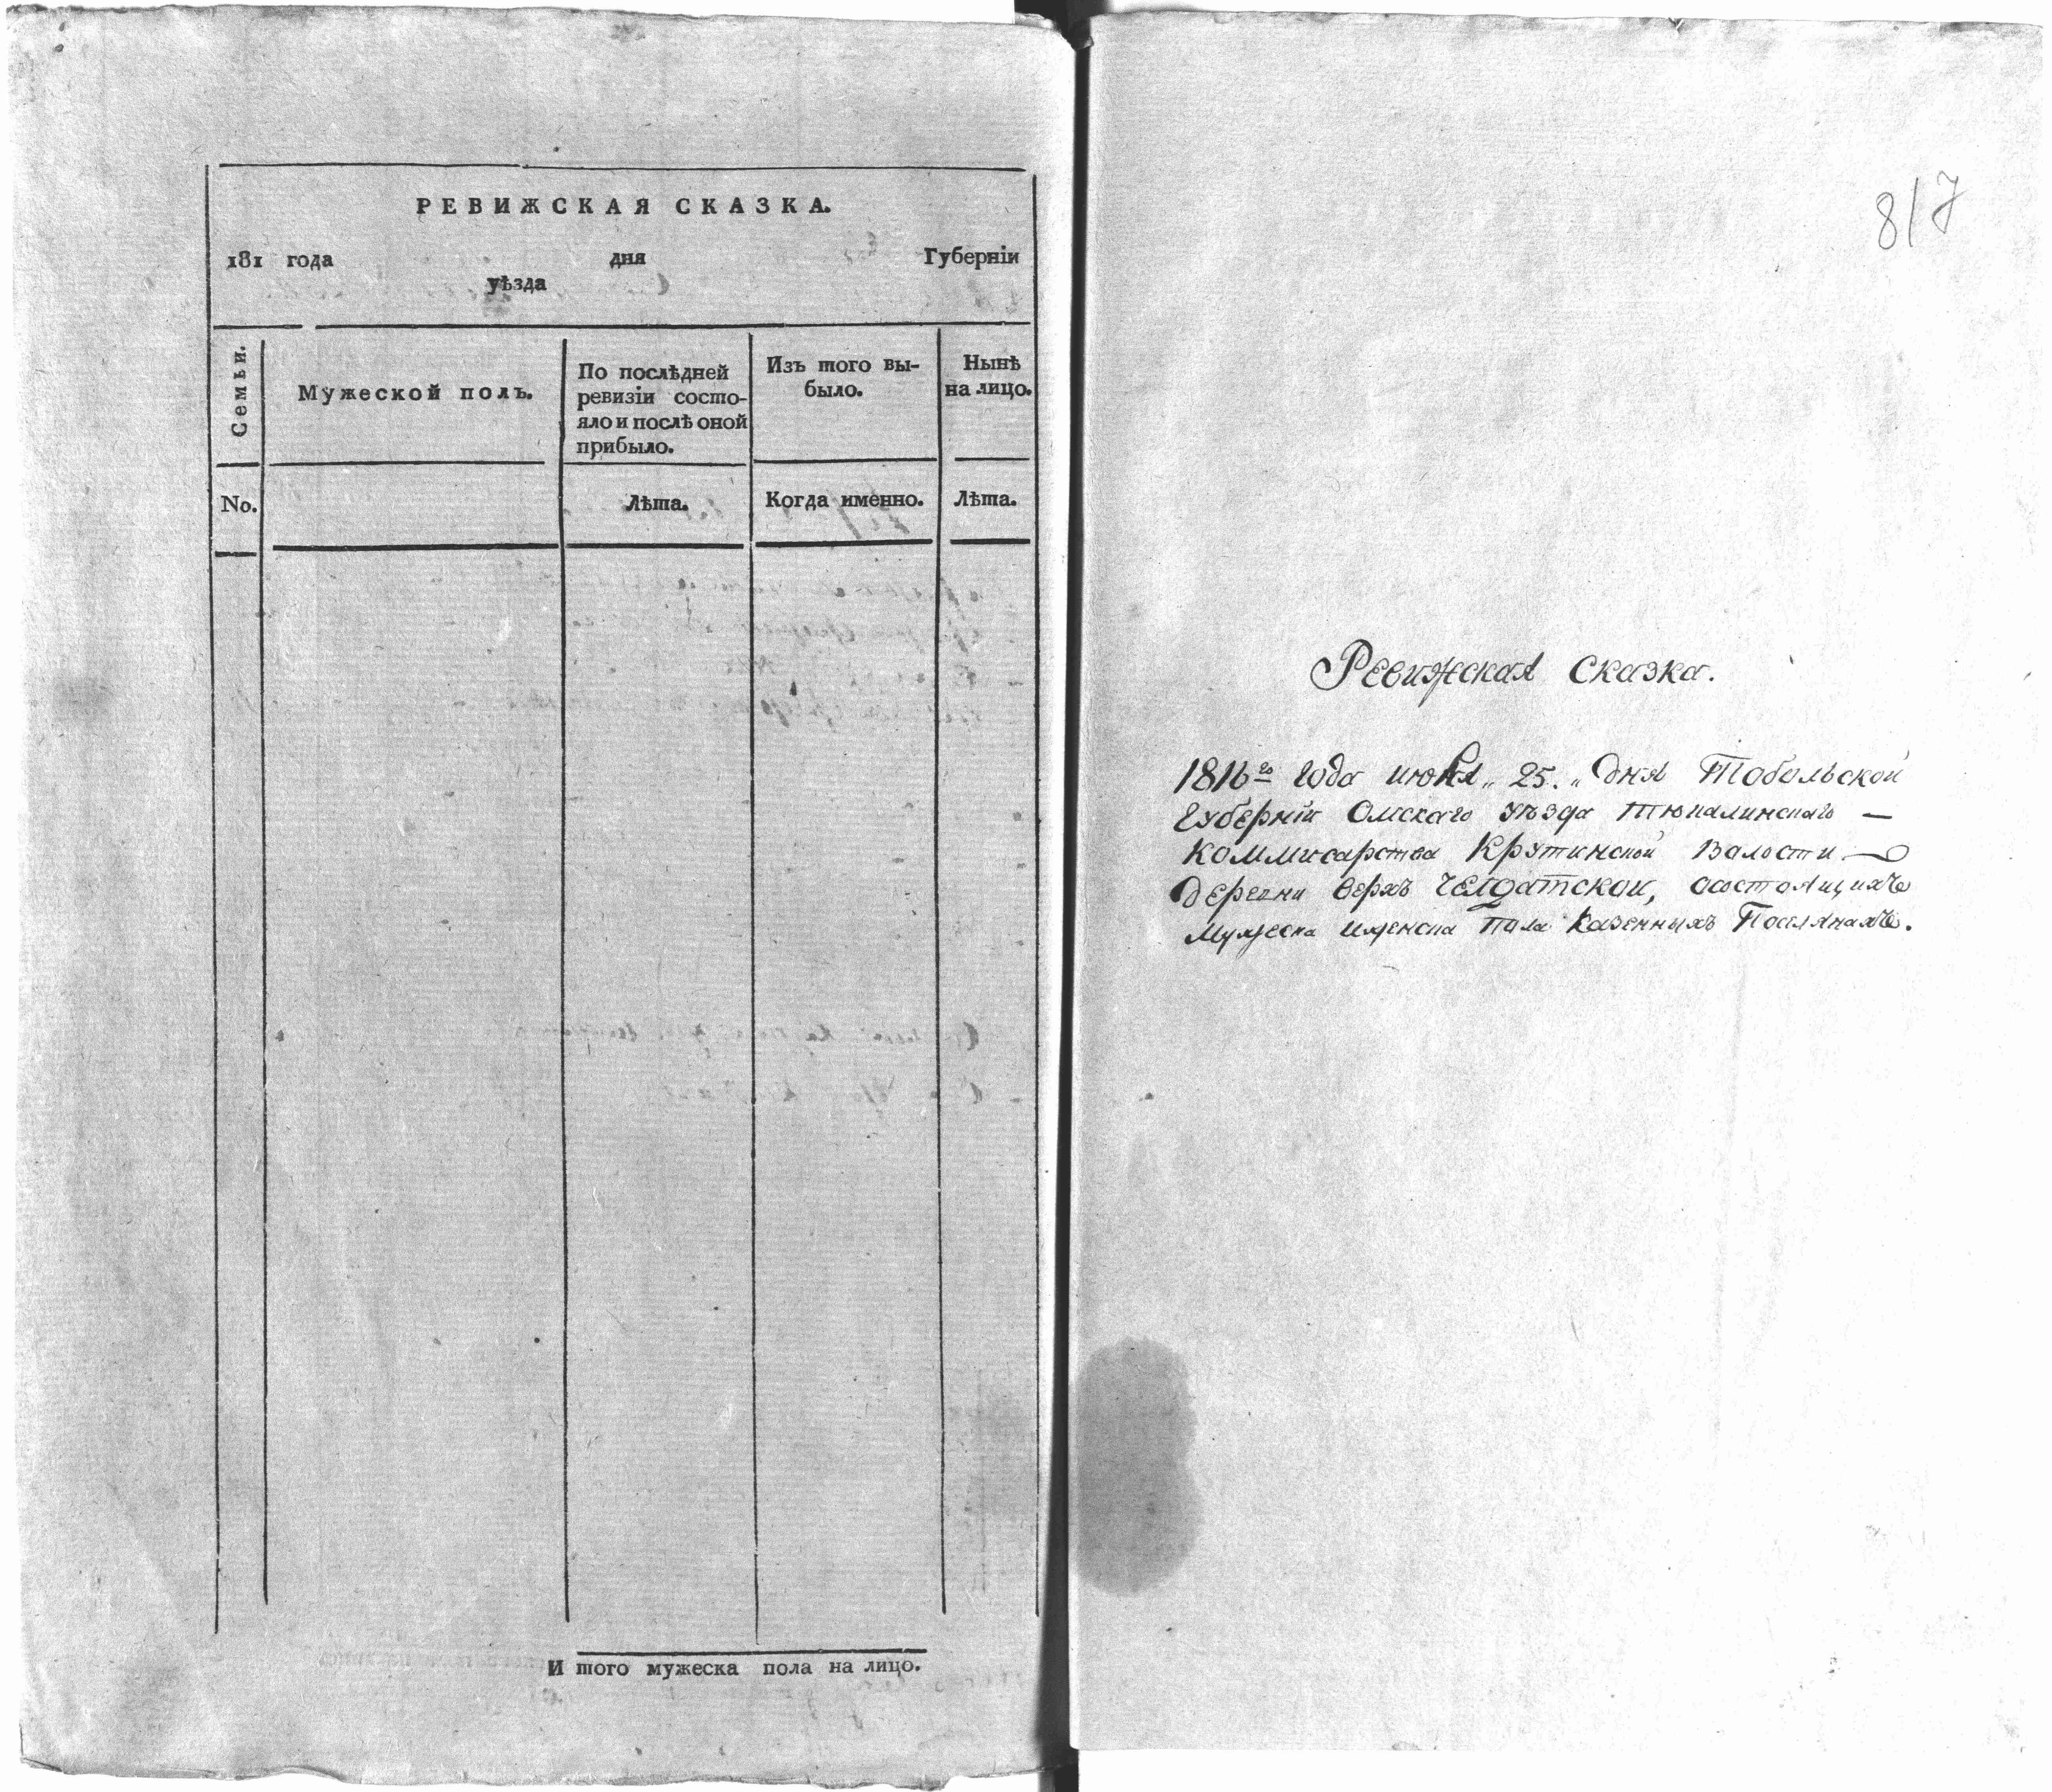 РЕВИЖСКАЯ СКАЗКА.
181 года дня Губернїи
уѣзда
Семьи.
Мужеской полъ.
По послѣдней
ревизїи состо-
яло и послѣ оной
прибыло.
Изъ того вы-
было.
Нынѣ
на лицо.
No.
Лѣта.
Когда именно.
Лѣта.
И того мужеска пола на лицо.
817
Ревижская Сказка.
1816го года июня „25.„ дня Тобольской
Губернїи Омскаго уѣзда Тюкалинскаго —
Коммисарства Крутинской Валости —
деревни верхъ Челдатской, состоящихъ
Мужеска иженска Пола Казенныхъ Поселянахъ.